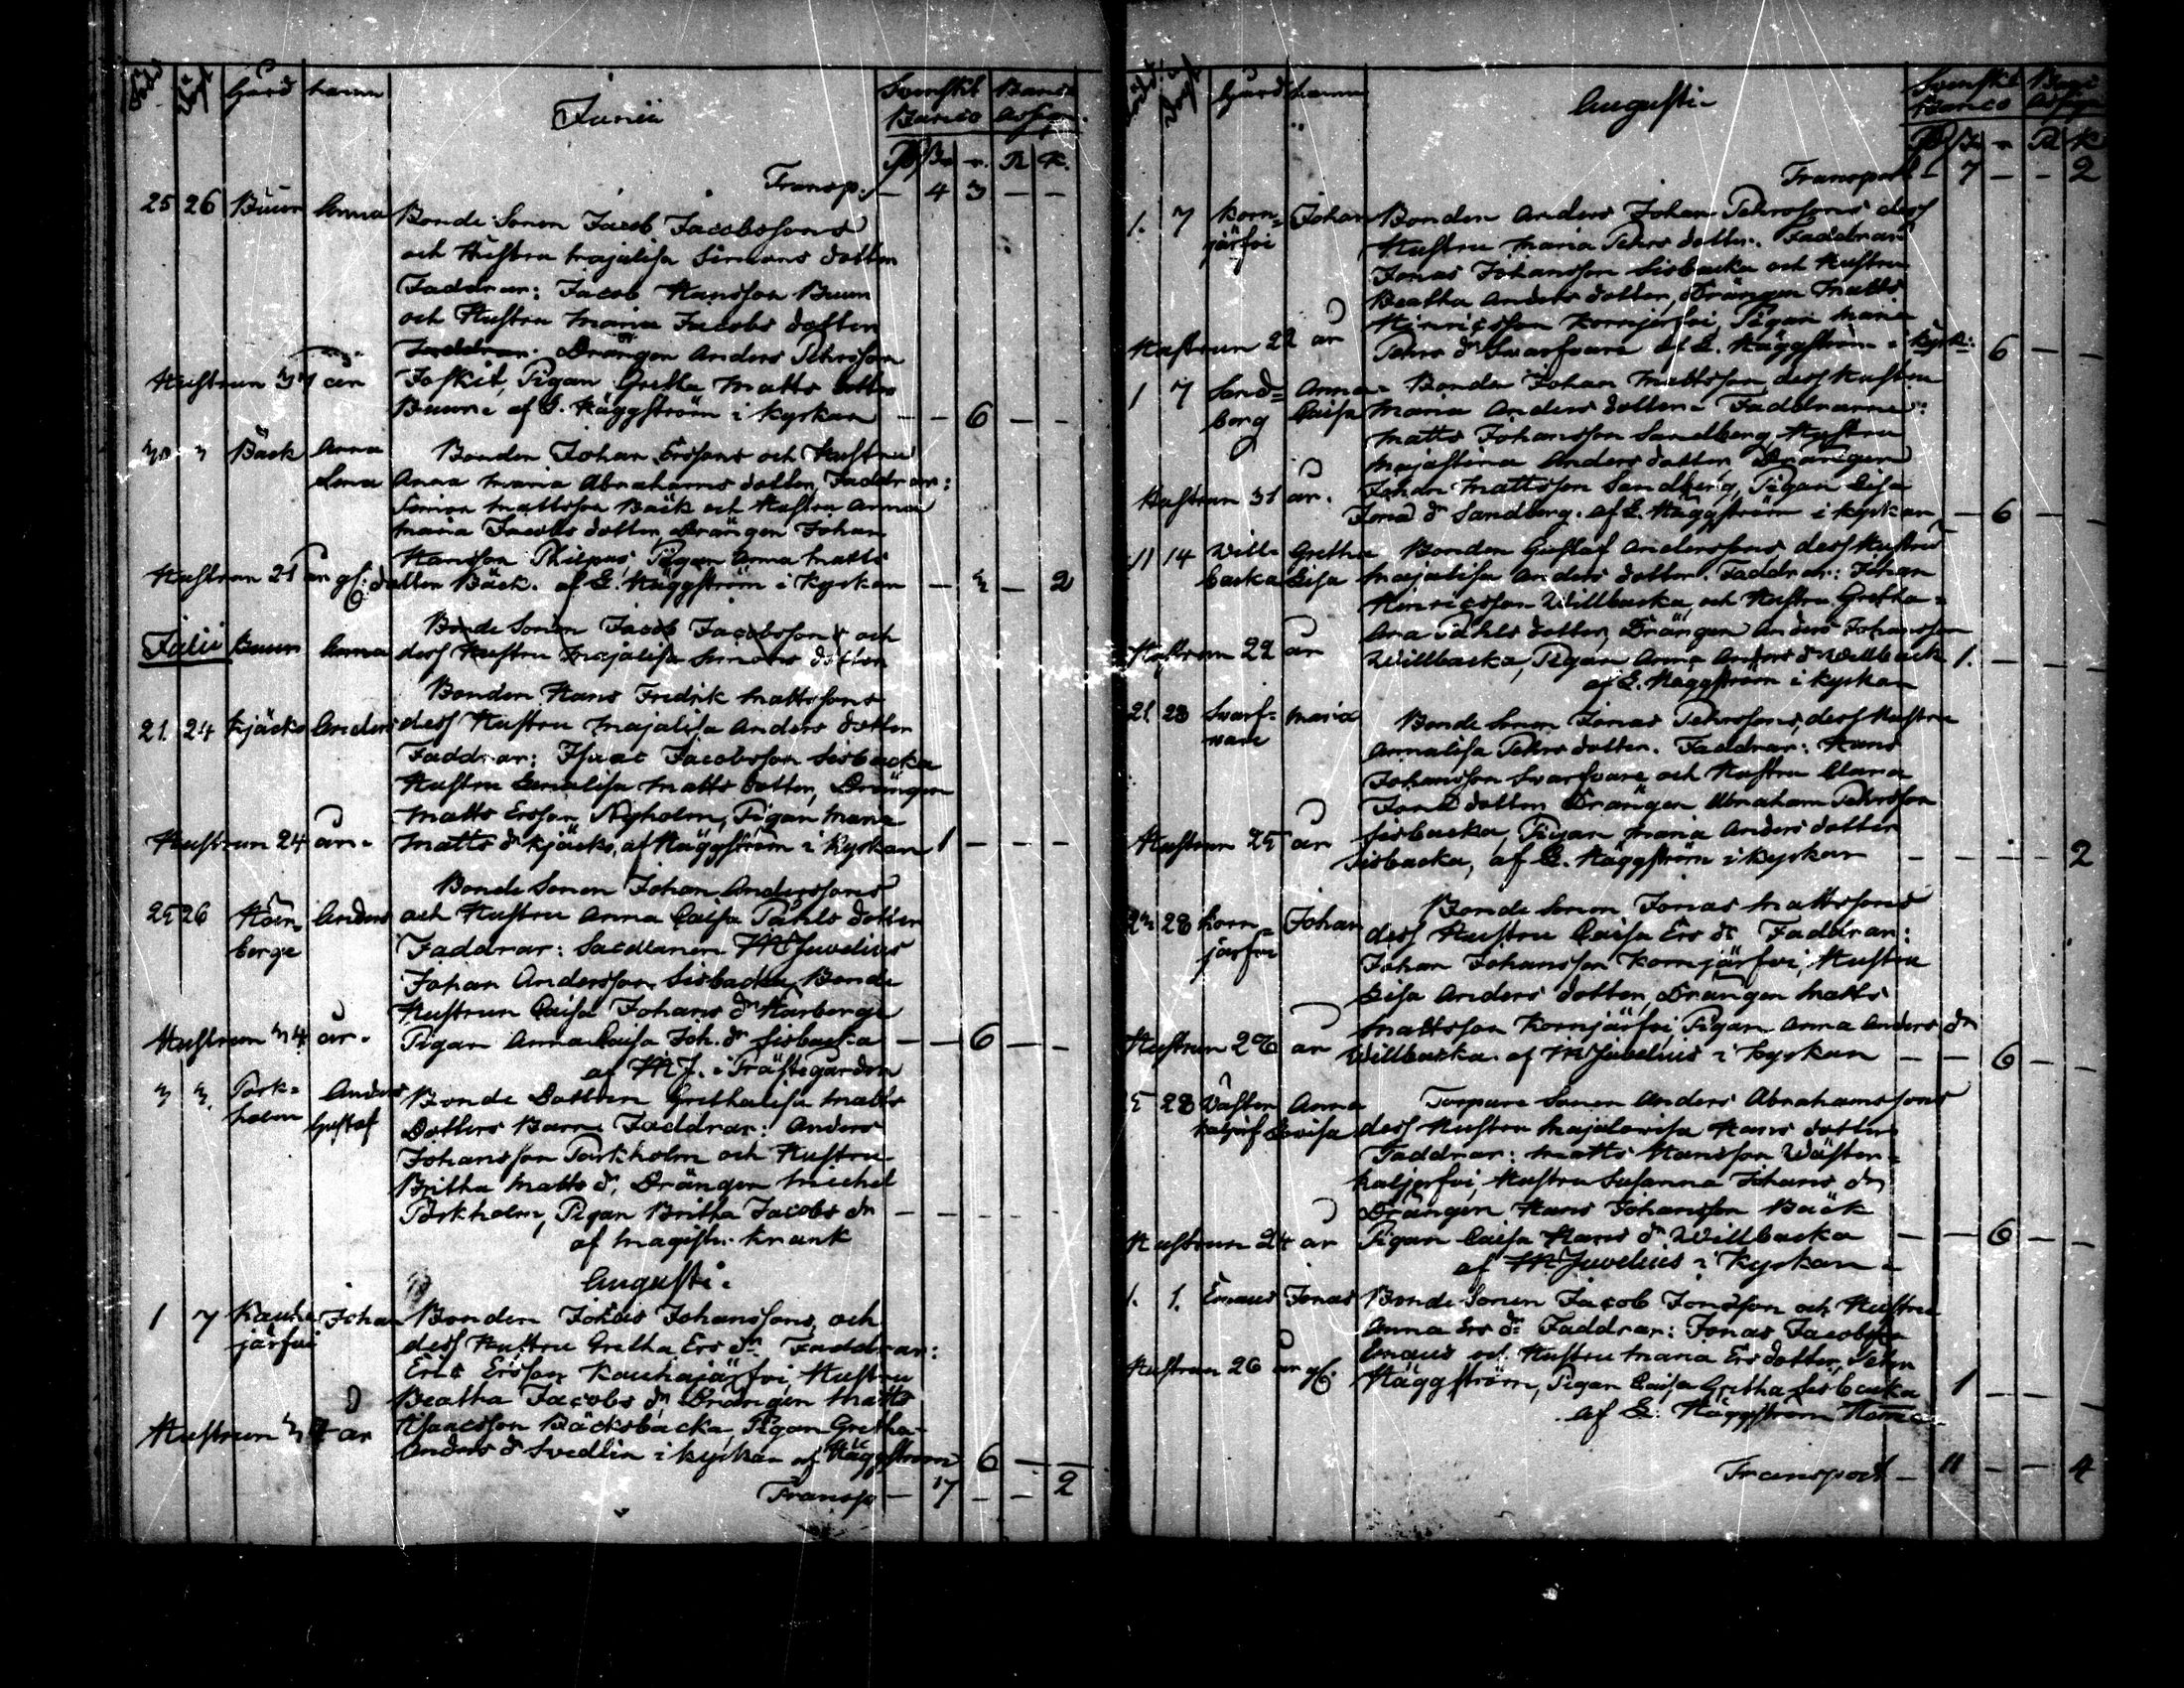 Född Döpt Gård Namn Junii Svenskt Banco Banco Assign.
Rd Sk r. R K.
Transp. — 4 3 — —
25 26 Buur Anna Bonde Sonen Jacob Jacobssons
och Hustru Majalisa Simons dotter
Faddrar: Jacob Hansson Buur
och Hustru Maria Jacobs dotter
Faddrar. Drängen Anders Pehrsson
Hustrun 37 år Joskit, Pigan Gretha Matts dotter
Buur af G. Häggström i Kyrkan — — 6 — —
30 3 Bäck Anna Bonden Johan Erssons och Hustru
Lena Anna Maria Abrahams dotter, Faddrar:
Simon Mattsson Bäck och Hustru Anna
Maria Jacobs dotter, Drängen Johan
Hansson Philpus, Pigan Anna Matts
Hustrun 21 år gl: dotter Bäck. af G. Häggström i Kyrkan — 3 — 2
Julii Buur Anna Bonde Sonen Jacob Jacobssons och
dess Hustru Majalisa Simons dotter
Bonden Hans Fredrik Mattssons
21. 24 Kjäcko Anders dess Hustru Majalisa Anders dotter
Faddrar: Isaac Jacobsson Sisbacka
Hustru Annalisa Matts dotter, Drängen
Matts Ersson Nyholm, Pigan Maria
Hustrun 24 år. Matts dr Kjäcko, af Häggström i Kyrkan 1 — — —
Bonde Sonen Johan Anderssons
25 26 Hörn- Anders och Hustru Anna Caisa Påhls dotter
berge Faddrar: Sacellanen M Juvelius
Johan Andersson Sisbacka, Bonde
Hustrun Caisa Johans dr Harberge
Hustrun 34 år. Pigan Anna Caisa Joh. dr Sisbacka — — 6 — —
af M J. i Prästegården
3 3. Pork- Anders Bonde Dottren Grethalisa Matts
holm Gustaf Dotters Barn Faddrar: Anders
Johansson Porkholm och Hustru
Britha Matts dr, Drängen Michel
Porkholm, Pigan Britha Jacobs dr — — — — —
af Magistr. Krank
Augusti.
1 7 Kauha Johan Bonden Johans Johanssons, och
järfvi dess Hustru Gretha Ers dr Faddrar:
Eric Ersson Kauhajärfvi, Hustru
Beatha Jacobs dr, Drängen Matts
Hustrun 37 år Isaacsson Bäcksbacka, Pigan Gretha
Anders dr Svedlin i kyrkan af Häggström 6 — —
Transp — 7 — — 2
Född Döpt Gård Namn Augusti Svenskt Banco Banco Assign
Rd Sk r R K
Transport — 7 — — 2
1. 7 Korn- Johan Bonden Anders Johan Pehrssons dess
järfvi Hustru Maria Pehrs dotter. Faddrar
Jonas Johansson Sisbacka och Hustru
Beatha Anders dotter, Drängen Matts
Hinricsson Kornjärfvi, Pigan Maria
Hustrun 22 år Pehrs dr Svarfvare af G. Häggström i Kyrk: 6 — —
1 7 Sand- Anna Bonden Johan Mattsson dess Hustru
berg Caisa Maria Anders dotter. Faddrarne:
Matts Johansson Sandberg, Hustru
Majastina Anders dotter, Drängen
Hustrun 31 år. Johan Mattsson Sandberg, Pigan Lisa
Jons dr Sandberg. af G. Häggström i kyrkan — 6 — —
11 14 Will- Gretha Bonden Gustaf Anderssons dess Hustru
backa Lisa Majalisa Anders dotter. Faddrar: Johan
Hinricsson Willbacka, och Hustru Gretha-
Ana Påhls dotter, Drängen Anders Johansson
Hustrun 22 år Willbacka, Pigan Anna Anders dr Willback 1. — — —
af G. Häggström i kyrkan
21 28 Svarf- Maria Bonde Sonen Jonas Pehrssons, dess Hustru
vare Annalisa Pehrs dotter. Faddrar: Hans
Johansson Svarfvare och Hustru Clara
Jons dotter, Drängen Abraham Pehrsson
Hustrun 25 år Sisbacka, Pigan Maria Anders dotter
Sisbacka, af G. Häggström i kyrkan — — — — 2
Bonde Sonen Jonas Mattssons
23 28 Korn- Johan dess Hustru Caisa Ers dr Faddrar:
järfvi Johan Johansson Kornjärfvi, Hustru
Lisa Anders dotter, Drängen Matts
Mattsson Kornjärfvi, Pigan Anna Anders dr
Hustrun 26 år Willbacka. af M Juvelius i kyrkan — — 6 — —
5 28 Väster Anna Torpare Sonen Anders Abrahamssons
Kaljerf Lovisa dess Hustru Majalovisa Hans dotter
Faddrar: Matts Hansson Wäster-
kaljerfvi, Hustru Susanna Johans dr
Drängen Hans Johansson Bäck
Hustrun 24 år Pigan Caisa Hans dr Willbacka — — 6 — —
af M Juvelius i Kyrkan
1. 1. Emaus Jonas Bonde Sonen Jacob Jonsson och Hustru
Anna Ers dr Faddrar: Jonas Jacobsson
Emaus och Hustru Maria Ers dotter, Pehr
Hustrun 26 år gl. Häggström, Pigan Caisa Gretha Sisbacka 1 — —
af G. Häggström Hema
Transport — 11 — — 4